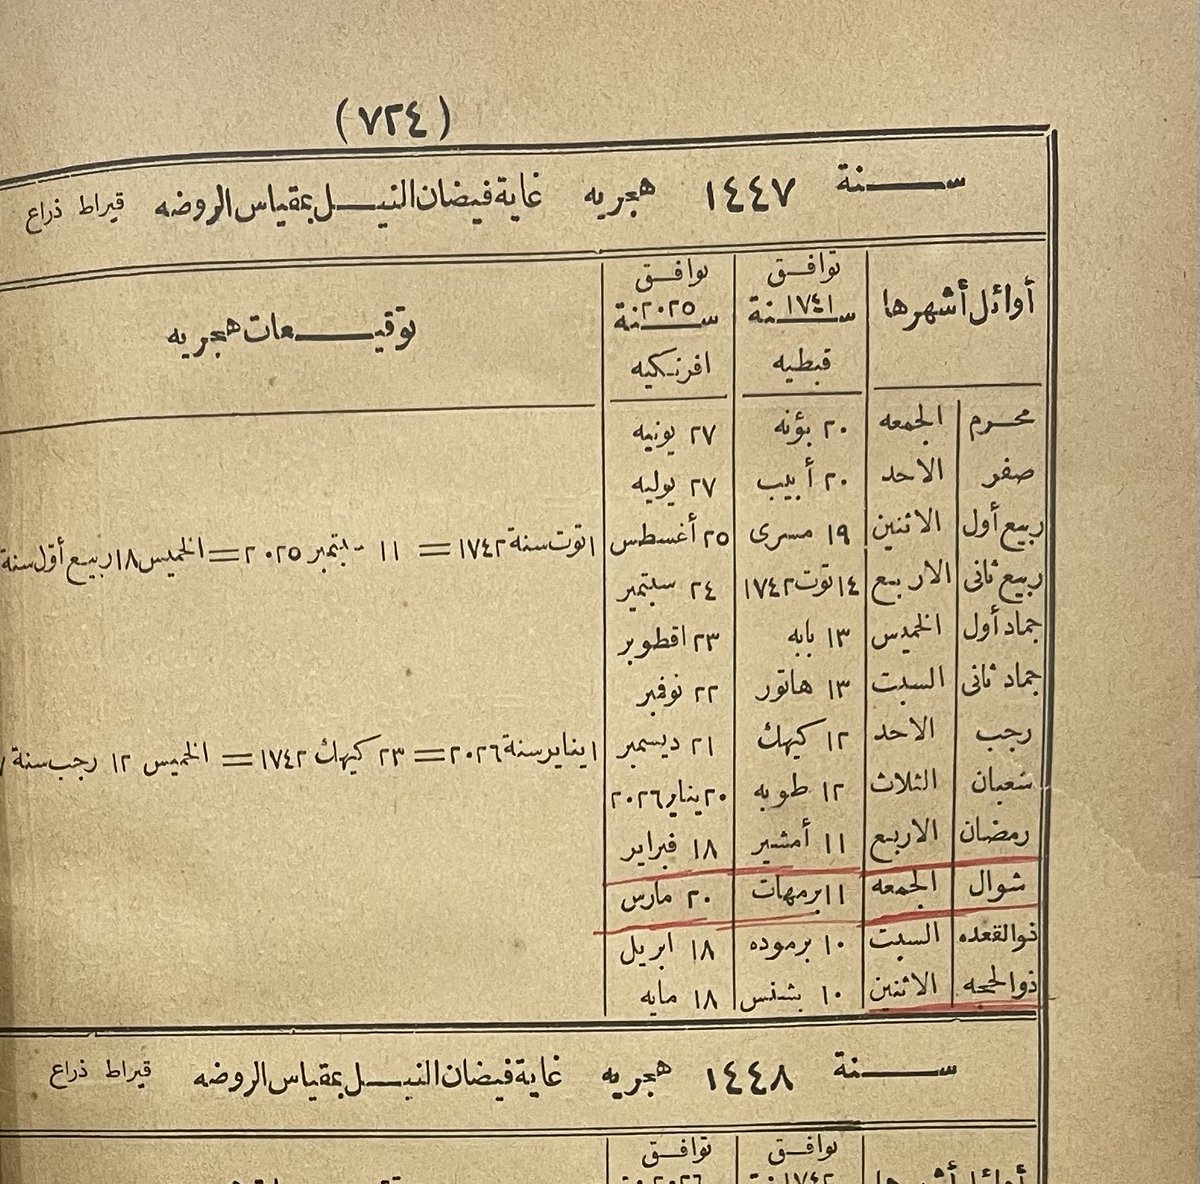 (٧٢٤)
سنة ١٤٤٧ هجريه غاية فيضان النيل بمقياس الروضه قيراط ذراع
أوائل أشهرها توافق سنة ١٧٤١ قبطيه توافق سنة ٢٠٢٥ افرنكيه توقيعات هجريه
محرم الجمعه ٢٠ بؤنه ٢٧ يونيه
صفر الاحد ٢٠ أبيب ٢٧ يوليه
ربيع أول الاثنين ١٩ مسرى ٢٥ أغسطس ١ توت سنة ١٧٤٢ = ١١ سبتمبر ٢٠٢٥ = الخميس ١٨ ربيع أول سنة
ربيع ثانى الاربع ١٤ توت ١٧٤٢ ٢٤ سبتمبر
جماد أول الخميس ١٣ بابه ٢٣ اقطوبر
جماد ثانى السبت ١٣ هاتور ٢٢ نوفمبر
رجب الاحد ١٢ كيهك ٢١ ديسمبر ١ يناير سنة ٢٠٢٦ = ٢٣ كيهك ١٧٤٢ = الخميس ١٢ رجب سنة
شعبان الثلاث ١٢ طوبه ٢٠ يناير ٢٠٢٦
رمضان الاربع ١١ أمشير ١٨ فبراير
شوال الجمعه ١١ برمهات ٢٠ مارس
ذو القعده السبت ١٠ برموده ١٨ ابريل
ذو الحجه الاثنين ١٠ بشنس ١٨ مايه
سنة ١٤٤٨ هجريه غاية فيضان النيل بمقياس الروضه قيراط ذراع
توافق توافق
أوائل أشهرها